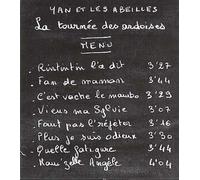 YAN ET LES ABEILLES
La tournée des ardoises
MENU
. Rintintin l'a dit 3'27
. Fan de maman 3'44
. C'est vache le mambo 3'29
. Viens ma Sylvie 3'07
. Faut pas l'répéter 3'16
. Plus je suis odieux 3'30
. Quelle fatigure 3'44
. Mam'zelle Angèle 4'04